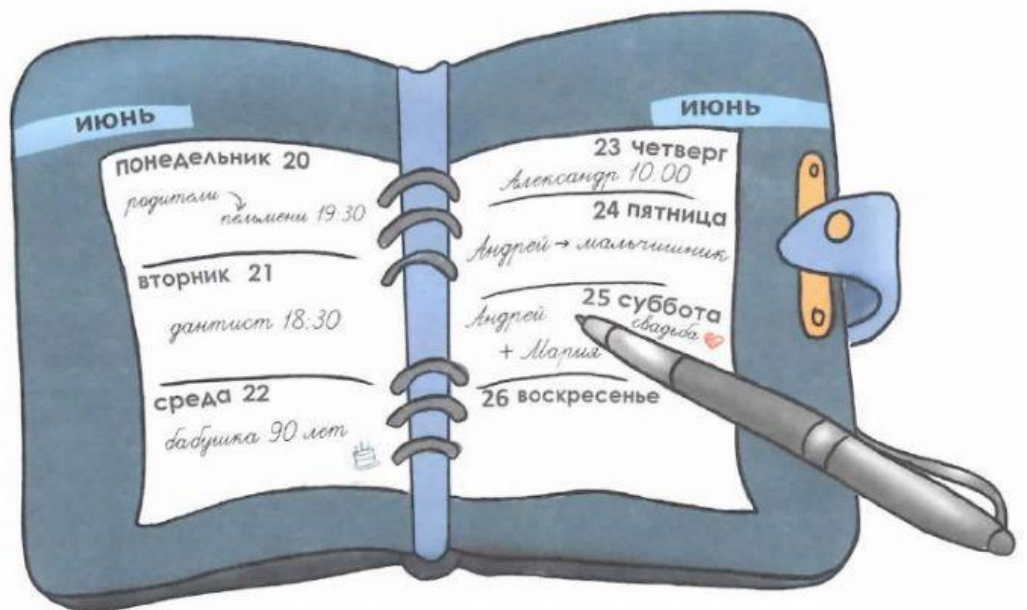 ИЮНЬ
понедельник 20
родители
пельмени 19:30
вторник 21
дантист 18:30
среда 22
бабушка 90 лет
ИЮНЬ
23 четверг
Александр 10.00
24 пятница
Андрей → мальчишник
25 суббота
свадьба
Андрей
+ Мария
26 воскресенье